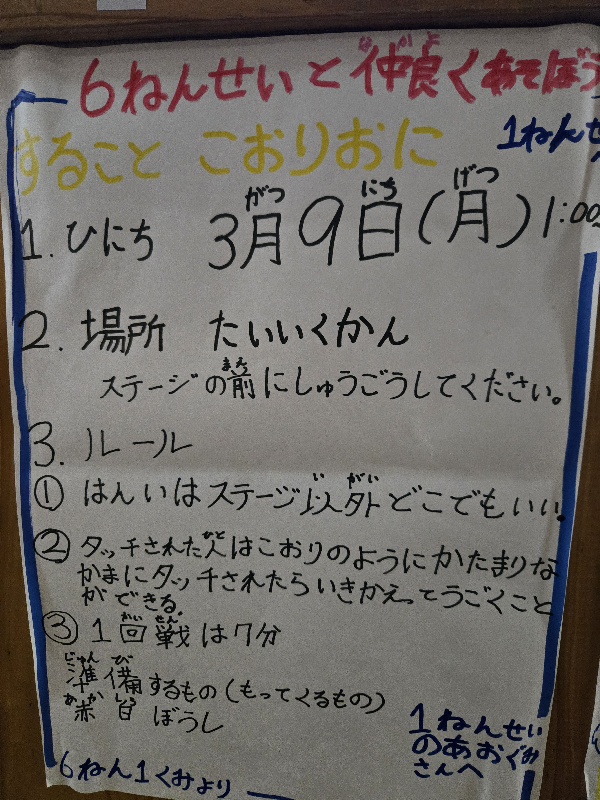 6ねんせいと仲良くあそぼう
すること こおりおに
1ねんせ
1. ひにち 3月9日(月)1:00
2. 場所 たいいくかん
ステージの前にしゅうごうしてください。
3. ルール
① はんいはステージ以外どこでもいい。
② タッチされた人はこおりのようにかたまりな
かまにタッチされたらいきかえってうごくこと
ができる。
③ 1回戦は7分
準備するもの(もってくるもの)
赤白ぼうし
1ねんせい
のあおぐみ
さんへ
6ねん1くみより